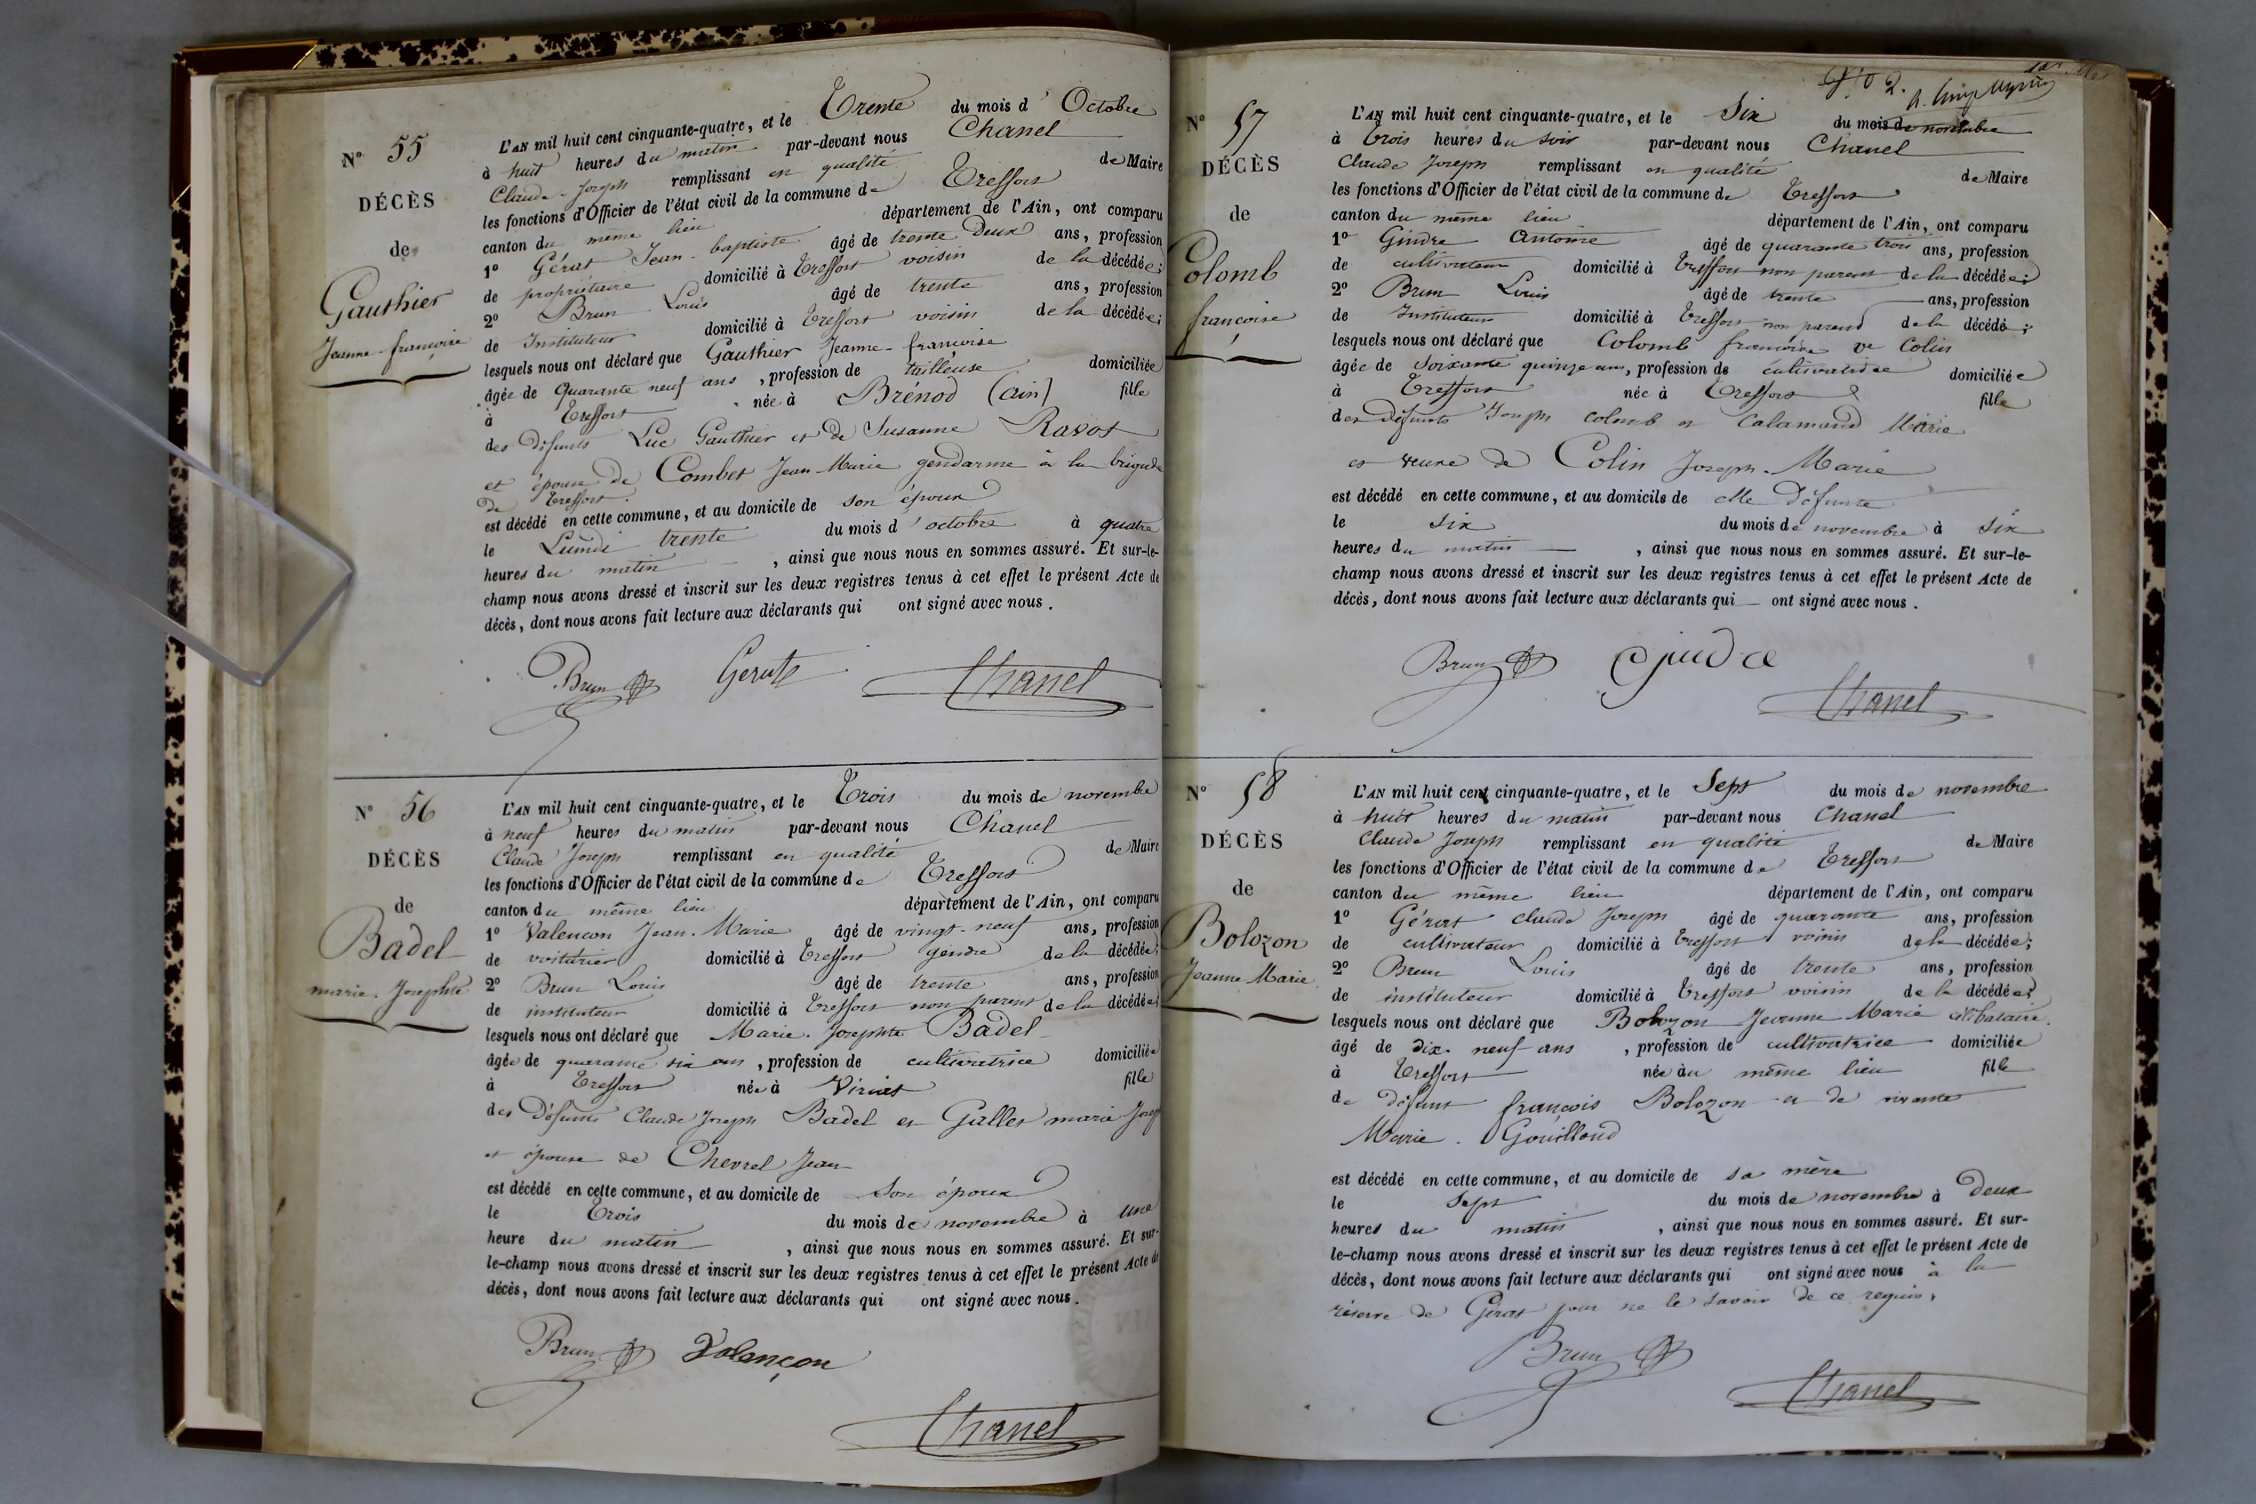 N° 55
DÉCÈS
de
Gauthier
Jeanne-françoise
L'AN mil huit cent cinquante-quatre, et le Trente du mois d'Octobre
à huit heures du matin par-devant nous Chanel
Claude-Joseph remplissant en qualité de Maire
les fonctions d'Officier de l'état civil de la commune de Treffort
canton du même lieu département de l'Ain, ont comparu
1° Gérat Jean-baptiste âgé de trente Deux ans, profession
de propriétaire domicilié à Treffort voisin de la décédée;
2° Brun Louis âgé de trente ans, profession
de Instituteur domicilié à Treffort voisin de la décédée;
lesquels nous ont déclaré que Gauthier Jeanne-francoise
âgée de Quarante neuf ans, profession de tailleuse domiciliée
à Treffort née à Brénod (ain) fille
des défunts Luc Gauthier et de Susanne Ravot
et épouse de Combet Jean-Marie gendarme à la brigade
de Treffort.
est décédé en cette commune, et au domicile de son époux
le Lundi trente du mois d'octobre à quatre
heures du matin, ainsi que nous nous en sommes assuré. Et sur-le-
champ nous avons dressé et inscrit sur les deux registres tenus à cet effet le présent Acte de
décès, dont nous avons fait lecture aux déclarants qui ont signé avec nous.
Brun Gerat Chanel
N° 56
DÉCÈS
de
Badel
marie-Josephte
L'AN mil huit cent cinquante-quatre, et le Trois du mois de novembre
à neuf heures du matin par-devant nous Chanel
Claude Joseph remplissant en qualité de Maire
les fonctions d'Officier de l'état civil de la commune de Treffort
canton du même lieu département de l'Ain, ont comparu
1° Valencon Jean-Marie âgé de vingt-neuf ans, profession
de voiturier domicilié à Treffort gendre de la décédée;
2° Brun Louis âgé de trente ans, profession
de instituteur domicilié à Treffort non parent de la décédée;
lesquels nous ont déclaré que Marie-Josephte Badel
âgée de quarante six ans, profession de cultivatrice domiciliée
à Treffort née à Viriat fille
des Défunts Claude Joseph Badel et Gallet marie Josep
et épouse de Chevrel Jean
est décédé en cette commune, et au domicile de Son époux
le Trois du mois de novembre à une
heure du matin, ainsi que nous nous en sommes assuré. Et sur-
le-champ nous avons dressé et inscrit sur les deux registres tenus à cet effet le présent Acte de
décès, dont nous avons fait lecture aux déclarants qui ont signé avec nous.
Brun Valençon
Chanel
N° 57
DÉCÈS
de
Colomb
françoise
L'AN mil huit cent cinquante-quatre, et le Six du mois de novembre
à trois heures du soir par-devant nous Chanel
Claude Joseph remplissant en qualité de Maire
les fonctions d'Officier de l'état civil de la commune de Treffort
canton du même lieu département de l'Ain, ont comparu
1° Gindre Antoine âgé de quarante trois ans, profession
de cultivateur domicilié à Treffort non parent de la décédée;
2° Brun Louis âgé de trente ans, profession
de Instituteur domicilié à Treffort non parent de la décédé;
lesquels nous ont déclaré que Colomb françoise ve Colin
âgée de soixante quinze ans, profession de cultivatrice domiciliée
à Treffort née à Treffort fille
des défunts Joseph colomb et Calamand Marie
et veuve de Colin Joseph-Marie
est décédé en cette commune, et au domicile de elle défunte
le six du mois de novembre à six
heures du matin, ainsi que nous nous en sommes assuré. Et sur-le-
champ nous avons dressé et inscrit sur les deux registres tenus à cet effet le présent Acte de
décès, dont nous avons fait lecture aux déclarants qui ont signé avec nous.
Brun Gindre
Chanel
N° 58
DÉCÈS
de
Bolozon
Jeanne Marie
L'AN mil huit cent cinquante-quatre, et le Sept du mois de novembre
à huit heures du matin par-devant nous Chanel
Claude Joseph remplissant en qualité de Maire
les fonctions d'Officier de l'état civil de la commune de Treffort
canton du même lieu département de l'Ain, ont comparu
1° Gérat claude Joseph âgé de quarante ans, profession
de cultivateur domicilié à Treffort voisin de la décédée;
2° Brun Louis âgé de trente ans, profession
de instituteur domicilié à Treffort voisin de la décédée;
lesquels nous ont déclaré que Bolozon Jeanne Marie célibataire
âgé de dix-neuf ans, profession de cultivatrice domiciliée
à Treffort née àu même lieu fille
de défunt françois Bolozon et de vivante
Marie Gouilloud
est décédé en cette commune, et au domicile de sa mère
le Sept du mois de novembre à Deux
heures du matin, ainsi que nous nous en sommes assuré. Et sur-
le-champ nous avons dressé et inscrit sur les deux registres tenus à cet effet le présent Acte de
décès, dont nous avons fait lecture aux déclarants qui ont signé avec nous à la
réserve de Gérat pour ne le savoir de ce requis.
Brun
Chanel